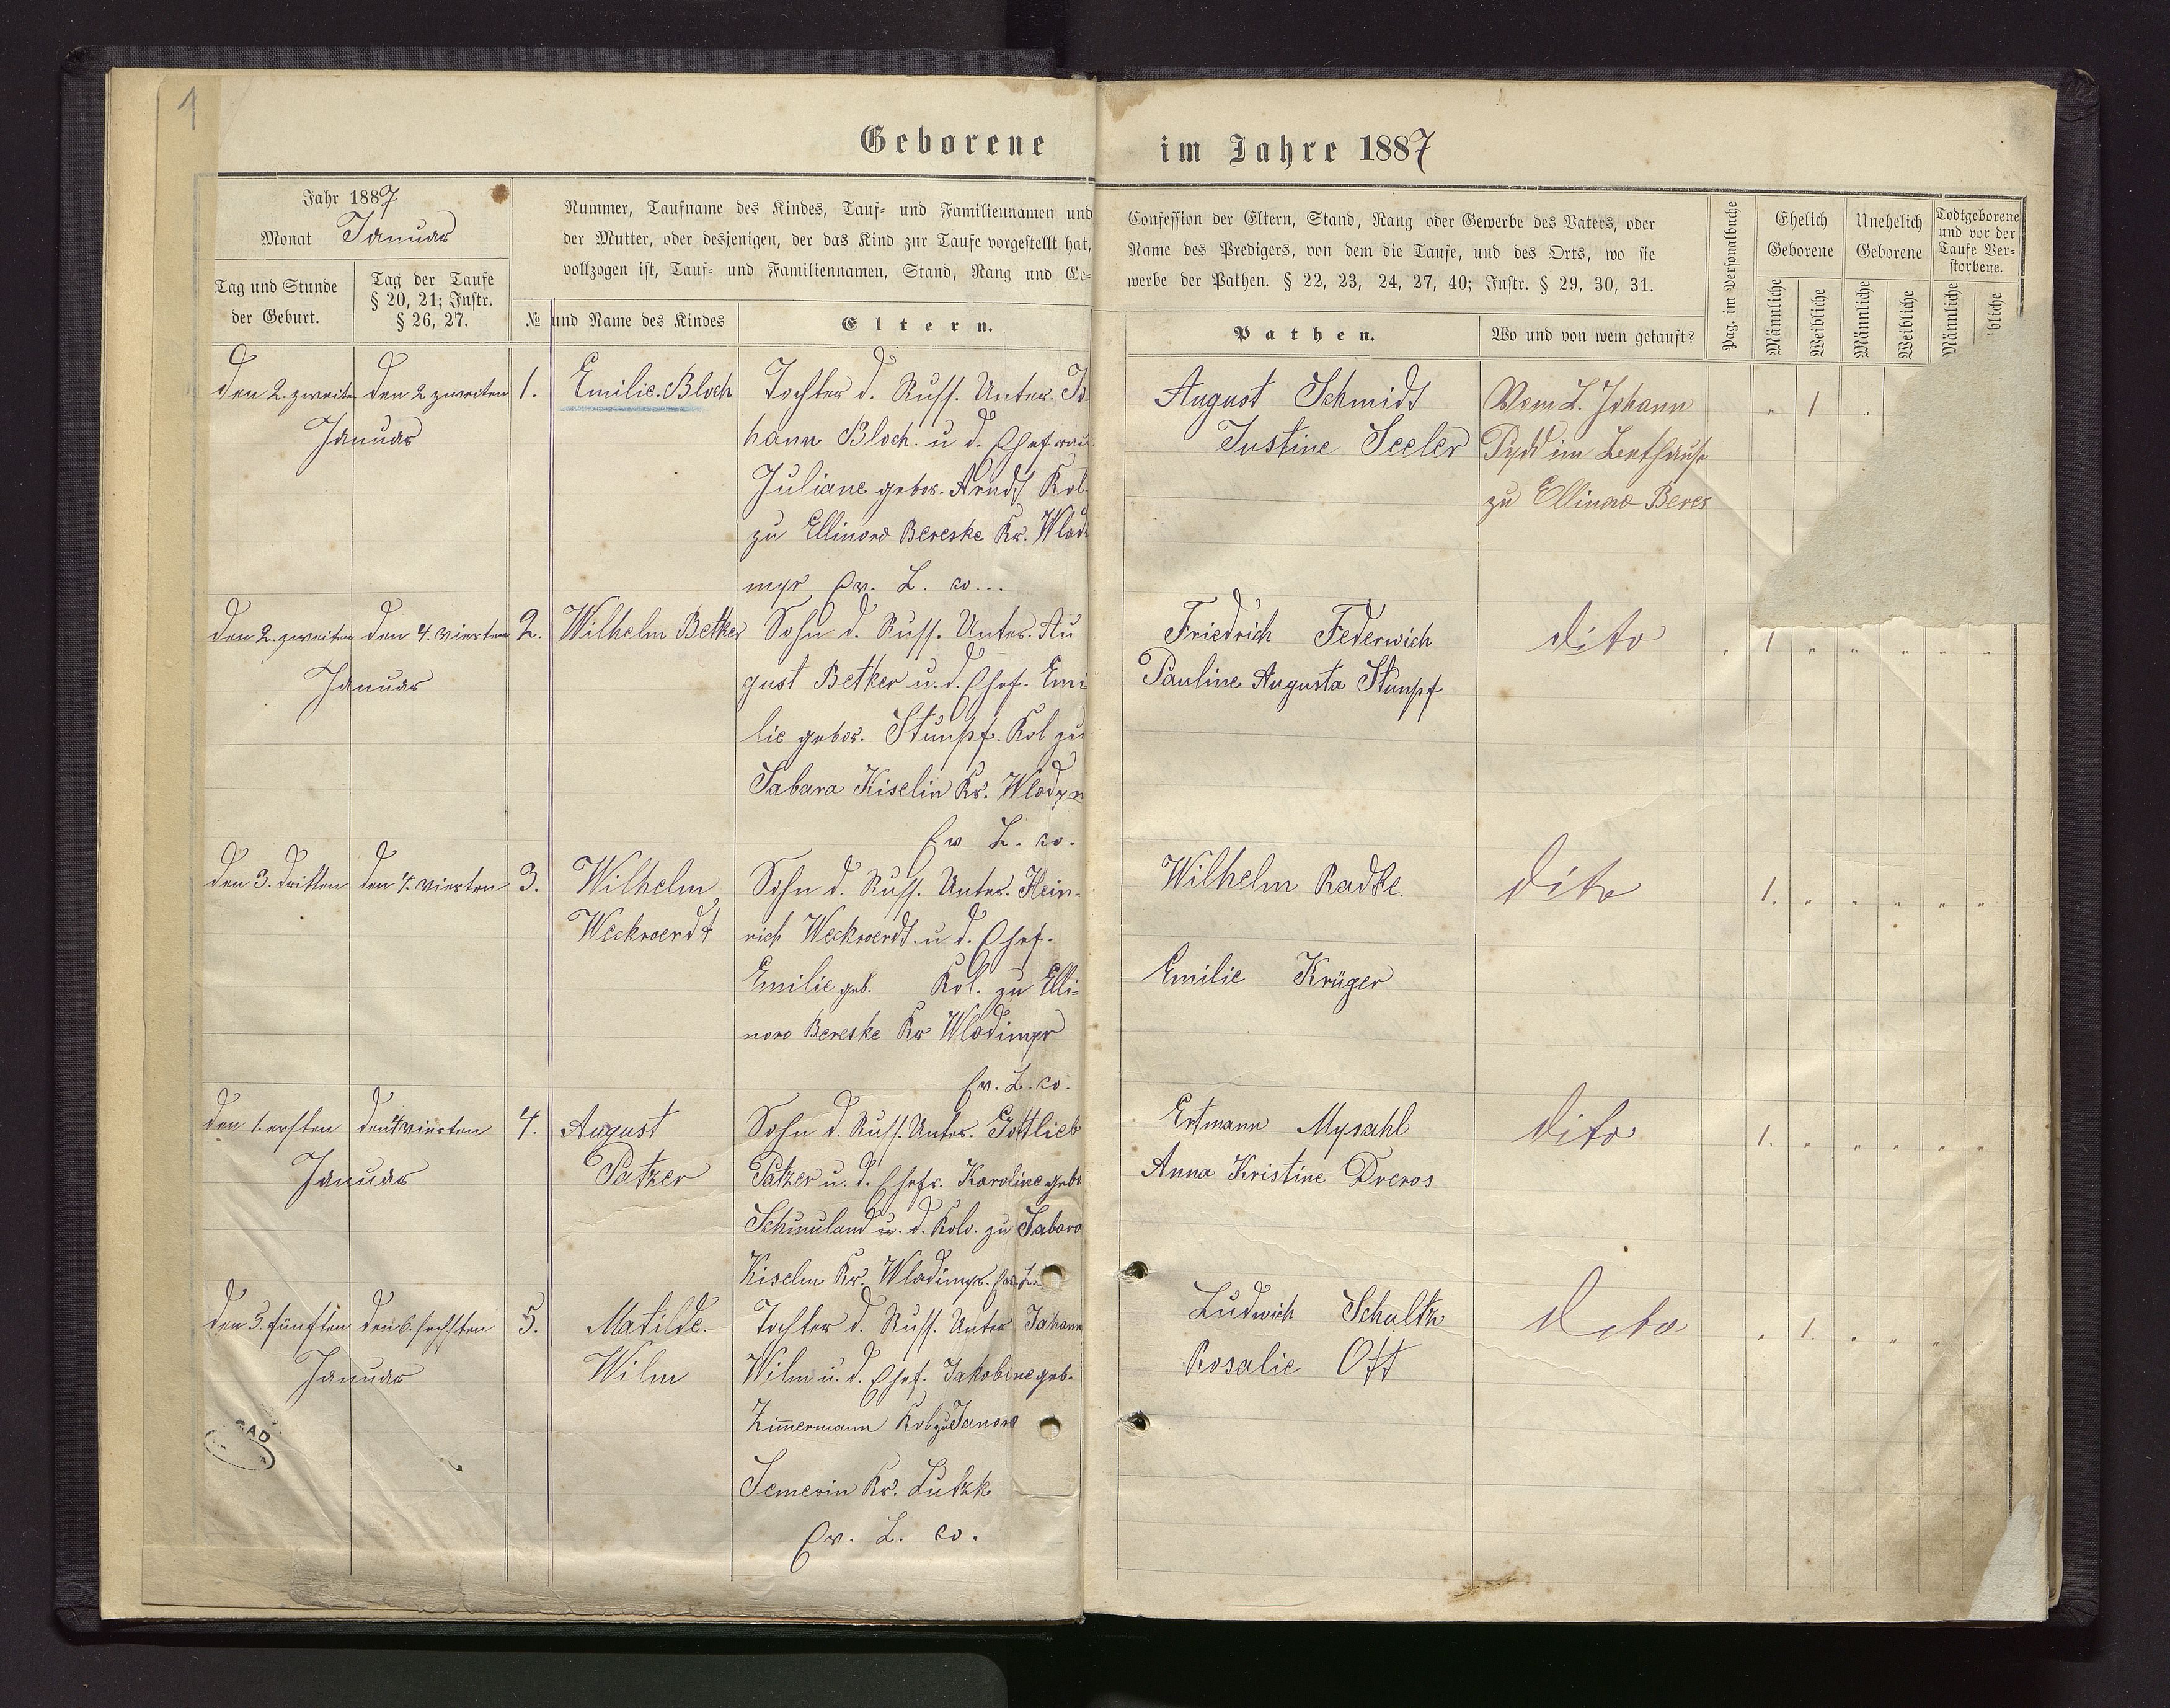 1
Geborene im Jahre 1887
Jahr 1887
Monat Januar
Tag und Stunde
der Geburt.
Tag der Taufe
§ 20, 21; Instr.
§ 26, 27.
Nummer, Taufname des Kindes, Tauf- und Familiennamen und
der Mutter, oder desjenigen, der das Kind zur Taufe vorgestellt hat,
vollzogen ist, Tauf- und Familiennamen, Stand, Rang und Ge-
№ und Name des Kindes
Eltern.
Confession der Eltern, Stand, Rang oder Gewerbe des Vaters, oder
Name des Predigers, von dem die Taufe, und des Orts, wo sie
werbe der Pathen. § 22, 23, 24, 27, 40; Instr. § 29, 30, 31.
Pathen.
Wo und von wem getauft?
Pag. im Personalbuche
Ehelich
Geborene
Unehelich
Geborene
Todtgeborene
und vor der
Taufe Ver-
storbene.
Männliche
Weibliche
Männliche
Weibliche
Männliche
bliche
den 2. zweiten
den 2 zweiten
Januar
1.
Emilie Bloch
Tochter d. Russ. Unter. Jo
hann Bloch. u d. Ehefrau
Juliane gebor. Arndt Kol
zu Ellinow Bereske Kr. Wlad
myr Ev. L. co...
August Schmidt
Justine Seeler
Vom L. Johann
im Bethause
zu Ellinow Beres
" 1 "
den 2. zweiten
den 4. vierten
Januar
2.
Wilhelm Betker
Sohn d. Russ. Unter. Au
gust Betker u. d. Ehef. Emi
lie gebor. Stumpf. Kol zu
Sabara Kiselin Kr. Wlodym
Ev L. co.
Friedrich Federwich
Pauline Augusta Stumpf
dito
" 1 " " " " "
den 3. dritten
den 4. vierten
3.
Wilhelm
Weckwerdt
Sohn d. Russ. Unter. Hein-
rich Weckwerdt. u d. Ehef.
Emilie geb. Kol. zu Elli-
now Bereske Kr Wlodimyr
Ev. L. co.
Wilhelm Radke.
Emilie Krüger
dito
1. " " " " "
den 1. ersten
den 4 vierten
Januar
4.
August
Patzer
Sohn d. Russ. Unter. Gottlieb
Patzer u. d. Ehefr. Karoline gebo
u. d. Kolo. zu Sabaro
Kiselin Kr. Wladimyr.
Ertmann Mysahl
Anna Kristine Drews
dito
1. " " " " "
den 5. fünften
den 6. sechsten
Januar
5.
Matilde.
Wilm
Tochter d. Russ. Unter Johann
Wilm u. d. Ehef. Jakobine geb.
Zimmermann Kol zu Janow
Semerin Kr. Lutzk
Ev. L. co.
Ludwich Schultz
Rosalie Ott
dito
" 1. " " " "